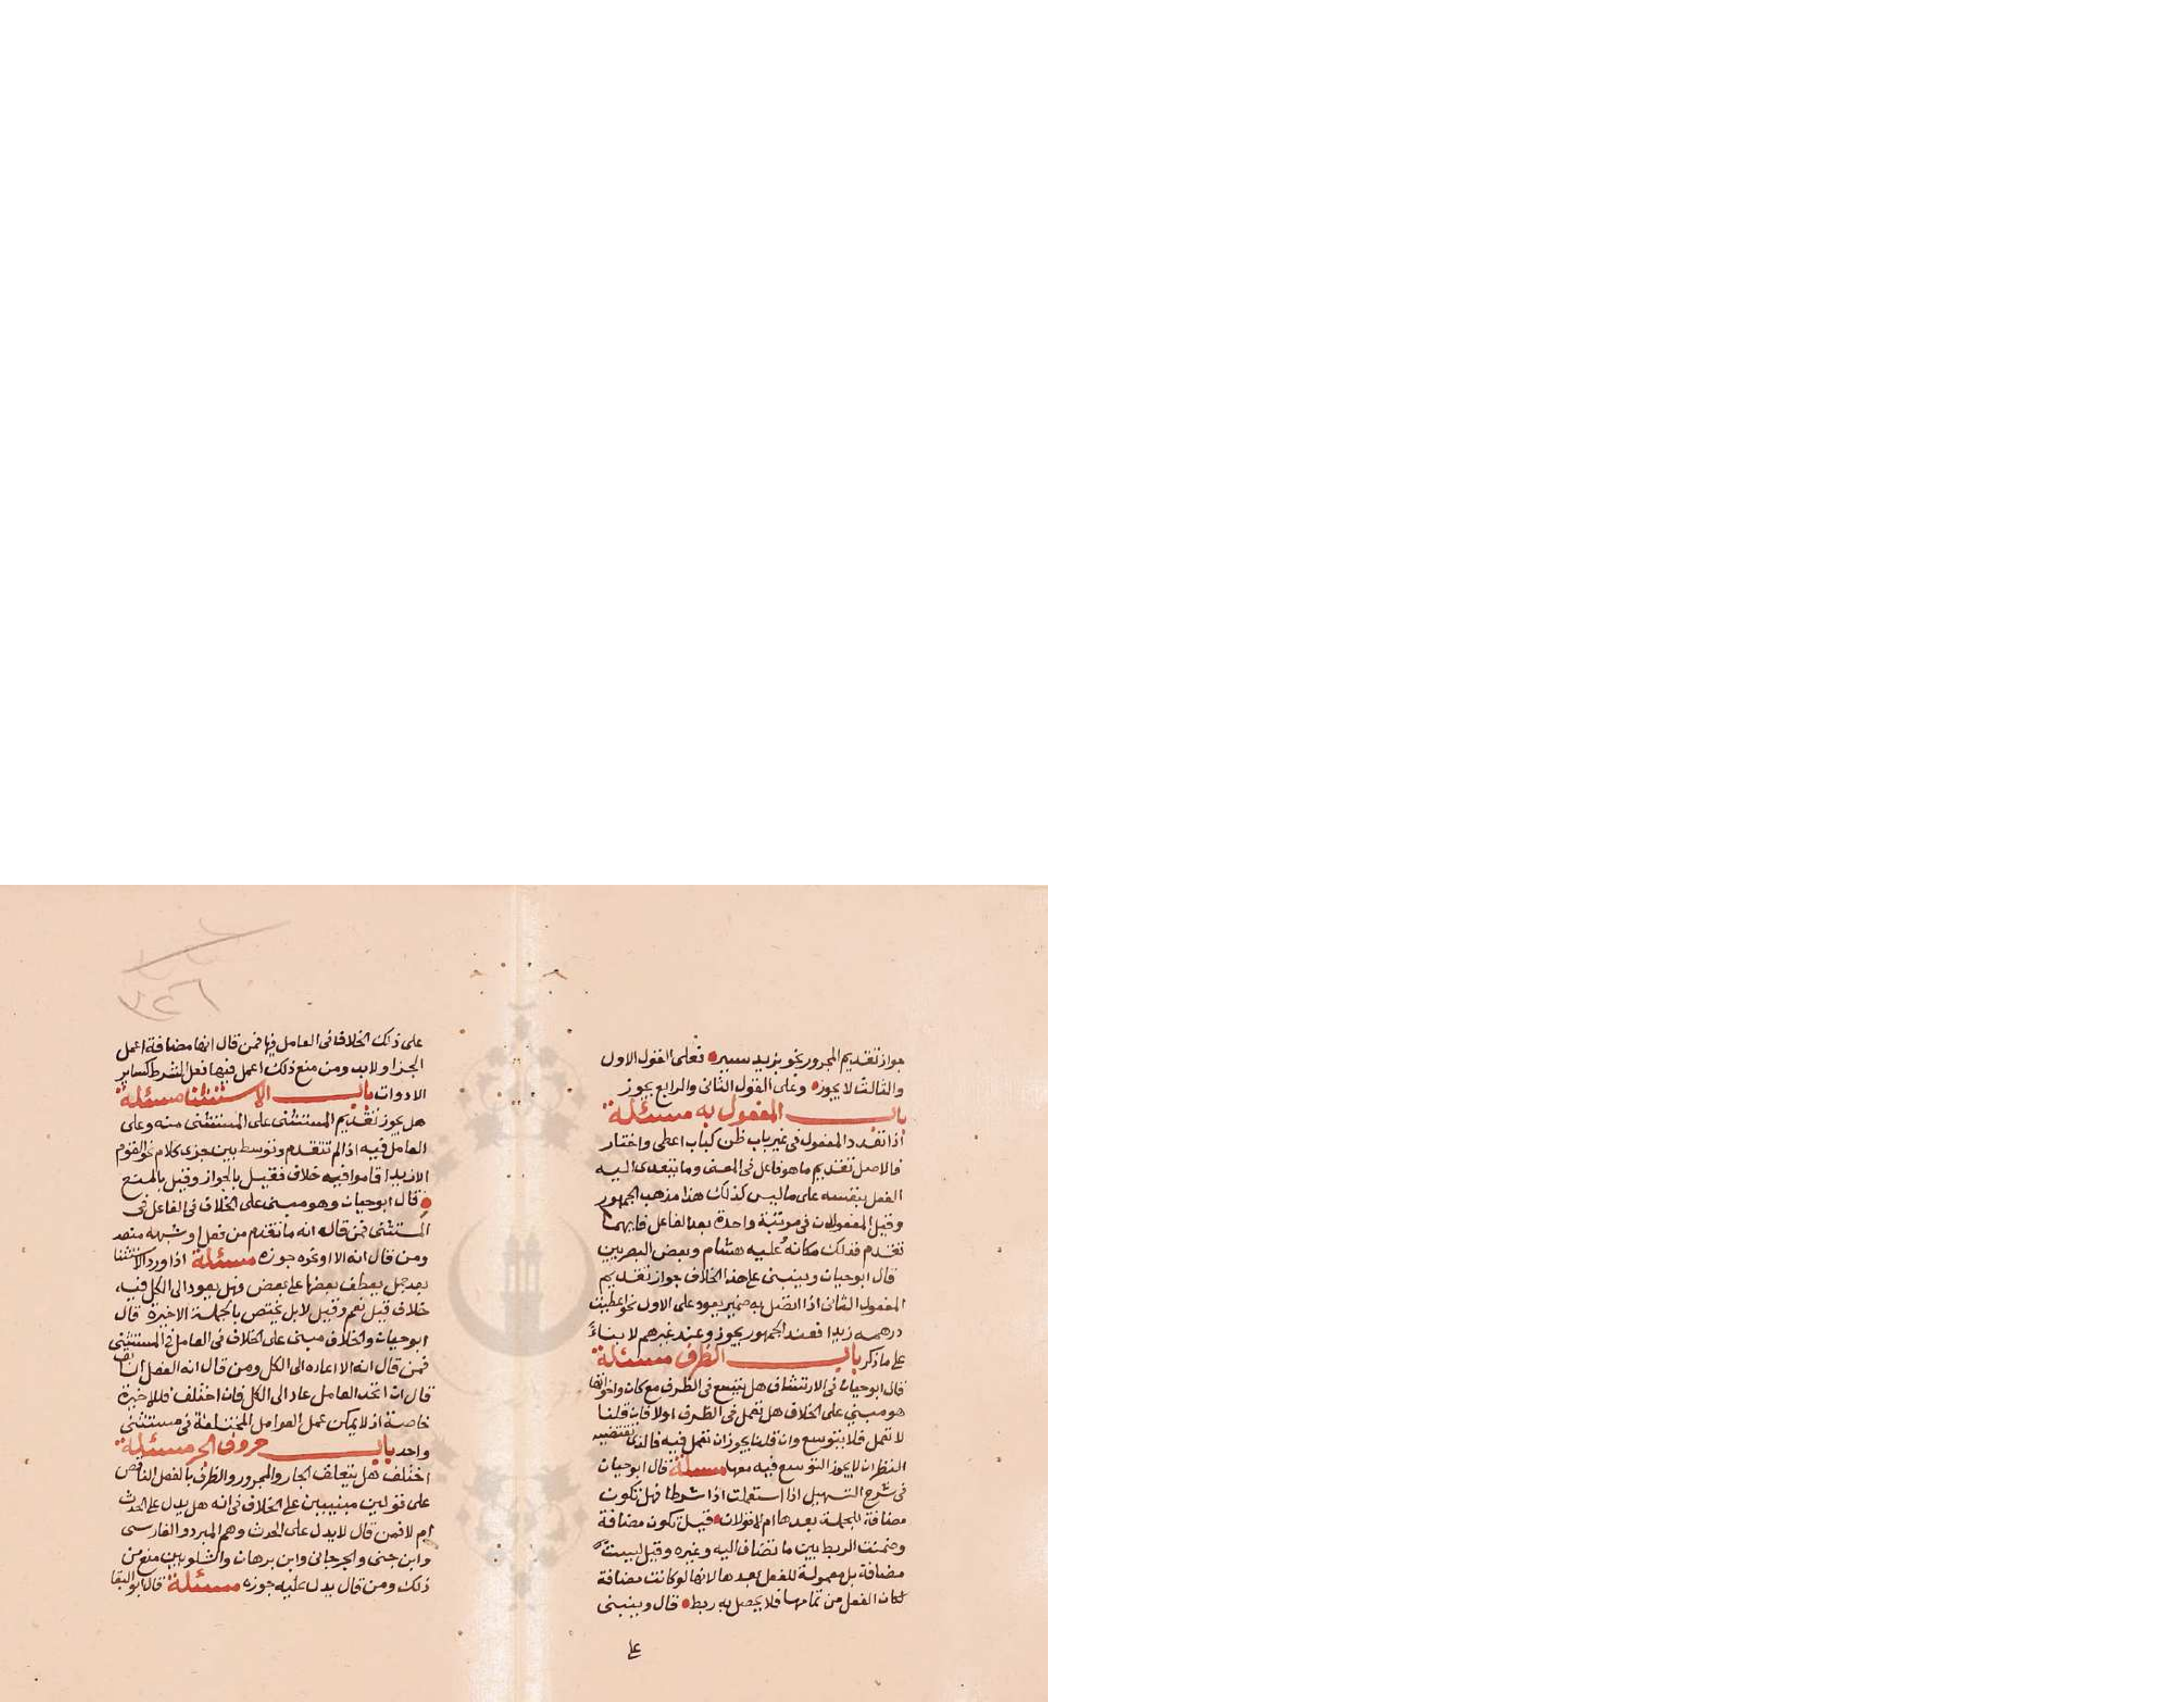 جواز تقديم المجرور نحو بزيد سير فعلى القول الاول
والثالث لا يجوز وعلى القول الثانى والرابع يجوز
باب المفعول به مسئلة
اذا تعدد المفعول فى غير باب ظن كباب اعطى واختار
فالاصل تقديم ما هو فاعل فى المعنى وما يتعدى اليه
الفعل بنفسه على ما ليس كذلك هذا مذهب الجمهور
وقيل المفعولان فى مرتبة واحدة بعد الفاعل فايهما
تقدم فذلك مكانه وعليه هشام وبعض البصريين
قال ابوحيان وينبنى على هذا الخلاف جواز تقديم
المفعول الثانى اذا اتصل به ضمير يعود على الاول نحو اعطيت
درهمه زيدا فعند الجمهور يجوز وعند غيرهم لا بناء
على ما ذكر باب الظرف مسئلة
قال ابوحيان فى الارتشاف هل يتسع فى الظرف مع كان واخواتها
هو مبنى على الخلاف هل تعمل فى الظرف اولا فان قلنا
لا تعمل فلا يتوسع وان قلنا يجوز ان تعمل فيه فالذى يقتضيه
النظر ان لا يجوز التوسع فيه معها مسئلة قال ابوحيان
فى شرح التسهيل اذا استعملت اذا شرطا فهل تكون
مضافة للجملة بعدها ام لا قولان قيل تكون مضافة
وضمنت الربط بين ما تضاف اليه وغيره وقيل ليست
مضافة بل معمولة للفعل بعدها لانها لو كانت مضافة
لكان الفعل من تمامها فلا يحصل به ربط قال وينبنى
على
على ذلك الخلاف فى العامل فيها فمن قال انها مضافة اعمل
الجزا ولابد ومن منع ذلك اعمل فيها فعل الشرط كساير
الادوات باب الاستثنا مسئلة
هل يجوز تقديم المستثنى على المستثنى منه وعلى
العامل فيه اذا لم تتقدم وتوسط بين جزى كلام نحو القوم
الا زيدا قاموا فيه خلاف فقيل بالجواز وقيل بالمنع
قال ابوحيان وهو مبنى على الخلاف فى العامل فى
المستثنى فمن قال انه ما تقدم من فعل او شبهه منعه
ومن قال انه الا او نحوه جوزه مسئلة اذا ورد الاستثنا
بعد جمل يعطف بعضها على بعض فهل يعود الى الكل فيه
خلاف قيل نعم وقيل لا بل يختص بالجملة الاخيرة قال
ابوحيان والخلاف مبنى على الخلاف فى العامل فى المستثنى
فمن قال انه الا اعاده الى الكل ومن قال انه الفعل السابق
قال ان اتحد العامل عاد الى الكل فان اختلف فللاخيرة
خاصة اذ لا يمكن عمل العوامل المختلفة فى مستثنى
واحد باب حروف الجر مسئلة
اختلف هل يتعلف الجار والمجرور والظرف بالفعل الناقص
على قولين مبنيين على الخلاف فى انه هل يدل على الحدث
ام لا فمن قال لا يدل على الحدث وهم المبرد والفارسى
وابن جنى والجرجانى وابن برهان والشلوبين منع من
ذلك ومن قال يدل عليه جوزه مسئلة قال ابو البقا
٣٢٦